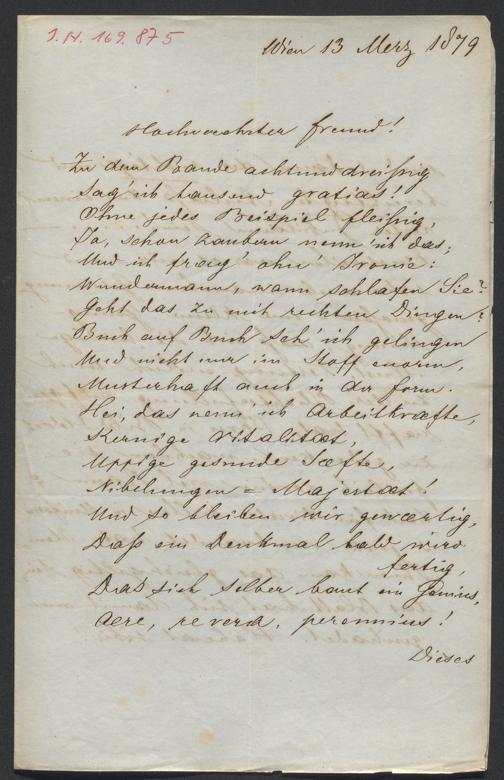 I.N. 169.875
Wien 13 Merz 1879
Hochverehrter freund!
Zu dem Bande achtunddreißig
Sag' ich tausend gratias!
Ohne jedes Beispiel fleißig,
Ja, schon zaubern nenn' ich das;
Und ich frag' ohn' Ironie:
Wundermann, wann schlafen Sie?
Geht das zu mit rechten Dingen?
Buch auf Buch seh' ich gelingen
Und nicht nur im Stoff enorm,
Musterhaft auch in der form.
Hei, das nenn' ich Arbeitkræfte,
Kernige Vitalitæt,
Uppige gesunde Sæfte,
Nibelungen = Majestæt!
Und so bleiben wir gewærtig,
Daß ein Denkmal bald wird
fertig,
Das sich selber baut ein Genius,
Aere, re vera, perennius!
Dieses